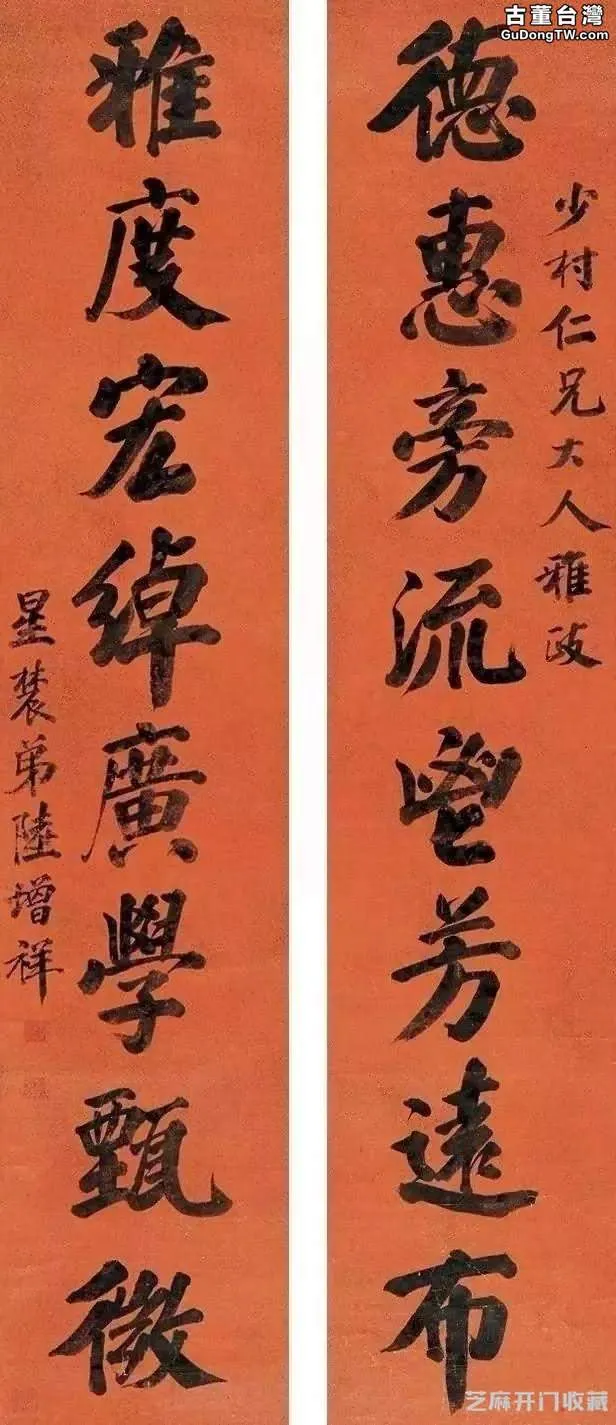 古董台灣
GuDongTW.com
少村仁兄大人雅政
德惠旁流鬯芳遠布
雅度宏綽廣學甄微
星農弟陸增祥
芝麻开门收藏